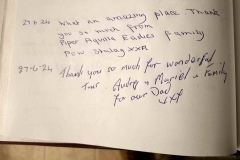 27-6-24 What an amazing place Thank
you so much from
Piper Aquilla Eadies family
POW Stalag XXA
27-6-24 Thank you so much for wonderful
Tour Audrey & Muriel & family
for our Dad
xx